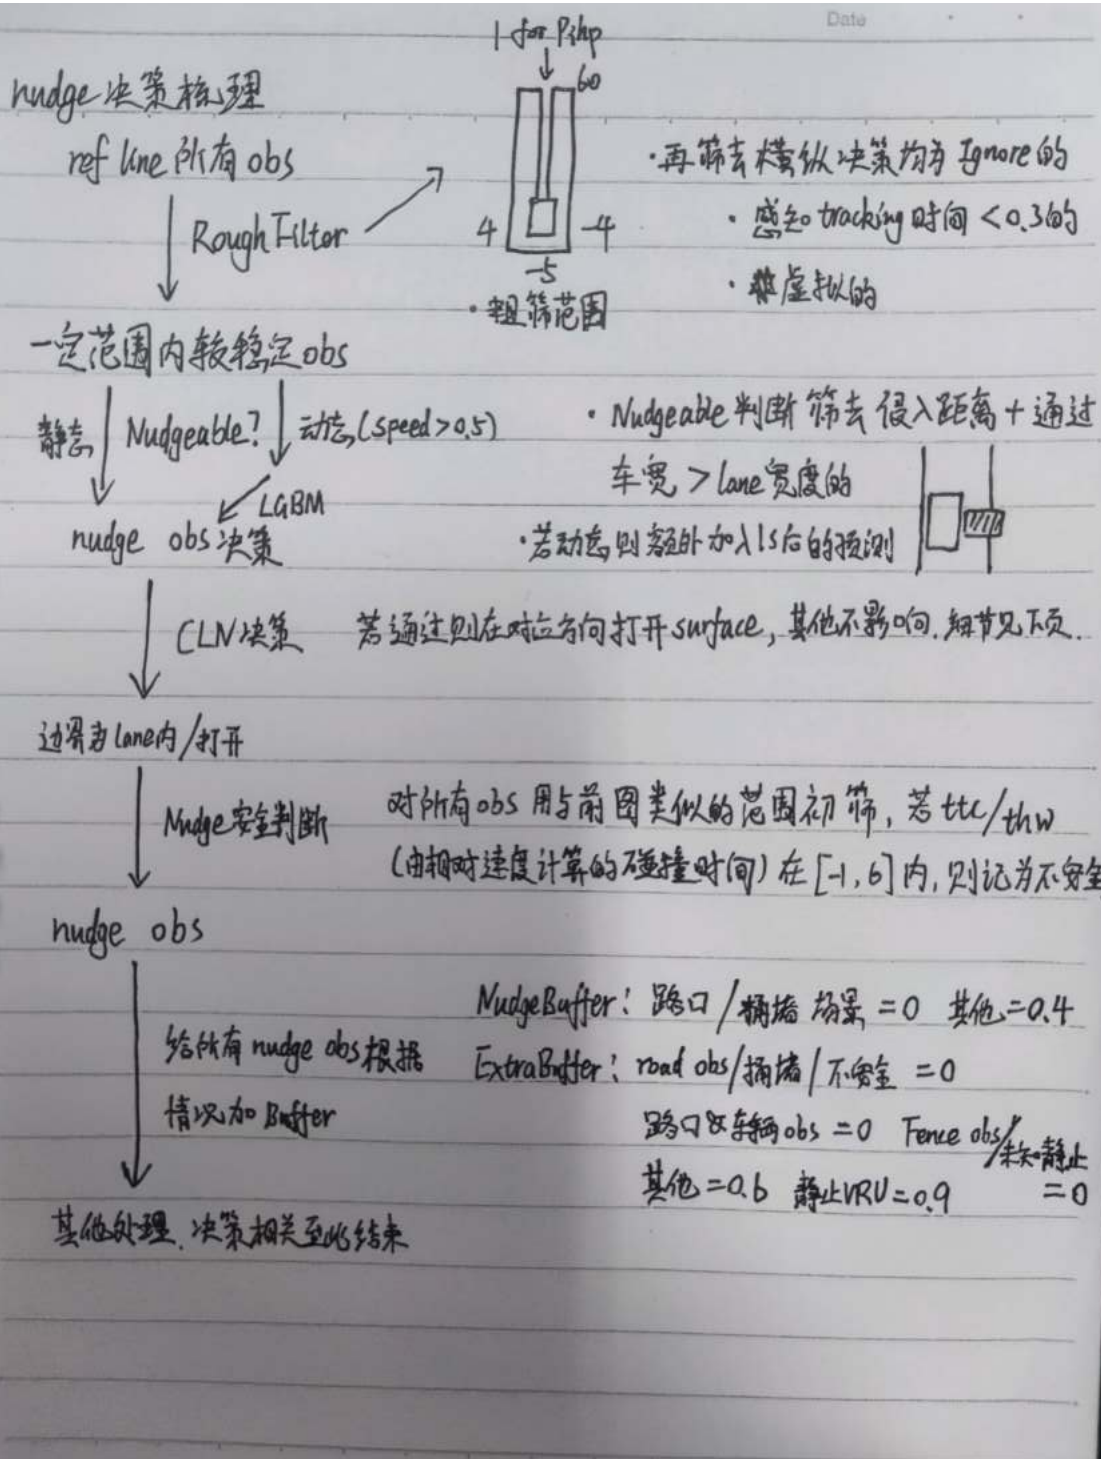 Date
1 for Pihp
60
nudge 决策梳理
ref line 所有 obs
RoughFilter
4
-4
-5
·粗筛范围
·再筛去横纵决策均为 Ignore的
·感知 tracking时间 <0.3的
·虚拟的
一定范围内较稳定obs
静态
Nudgeable?
动态(speed>0.5)
LGBM
nudge obs决策
·Nudgeable 判断 筛去 侵入距离+通过
车宽 > lane宽度的
·若动态则额外加入1s后的预测
CLN决策
若通过则在对应方向打开surface, 其他不影响. 细节见下页.
边界为lane内/打开
Nudge安全判断
对所有obs 用与前图类似的范围初筛, 若ttc/thw
(由相对速度计算的碰撞时间) 在[-1, 6]内, 则记为不安全
nudge obs
给所有 nudge obs根据
情况加 Buffer
NudgeBuffer: 路口/拥堵 场景 =0 其他=0.4
ExtraBuffer: road obs/拥堵/不安全 =0
路口&车辆obs =0 Fence obs/未知静止 =0
其他=0.6 静止VRU=0.9
其他处理. 决策相关至此结束